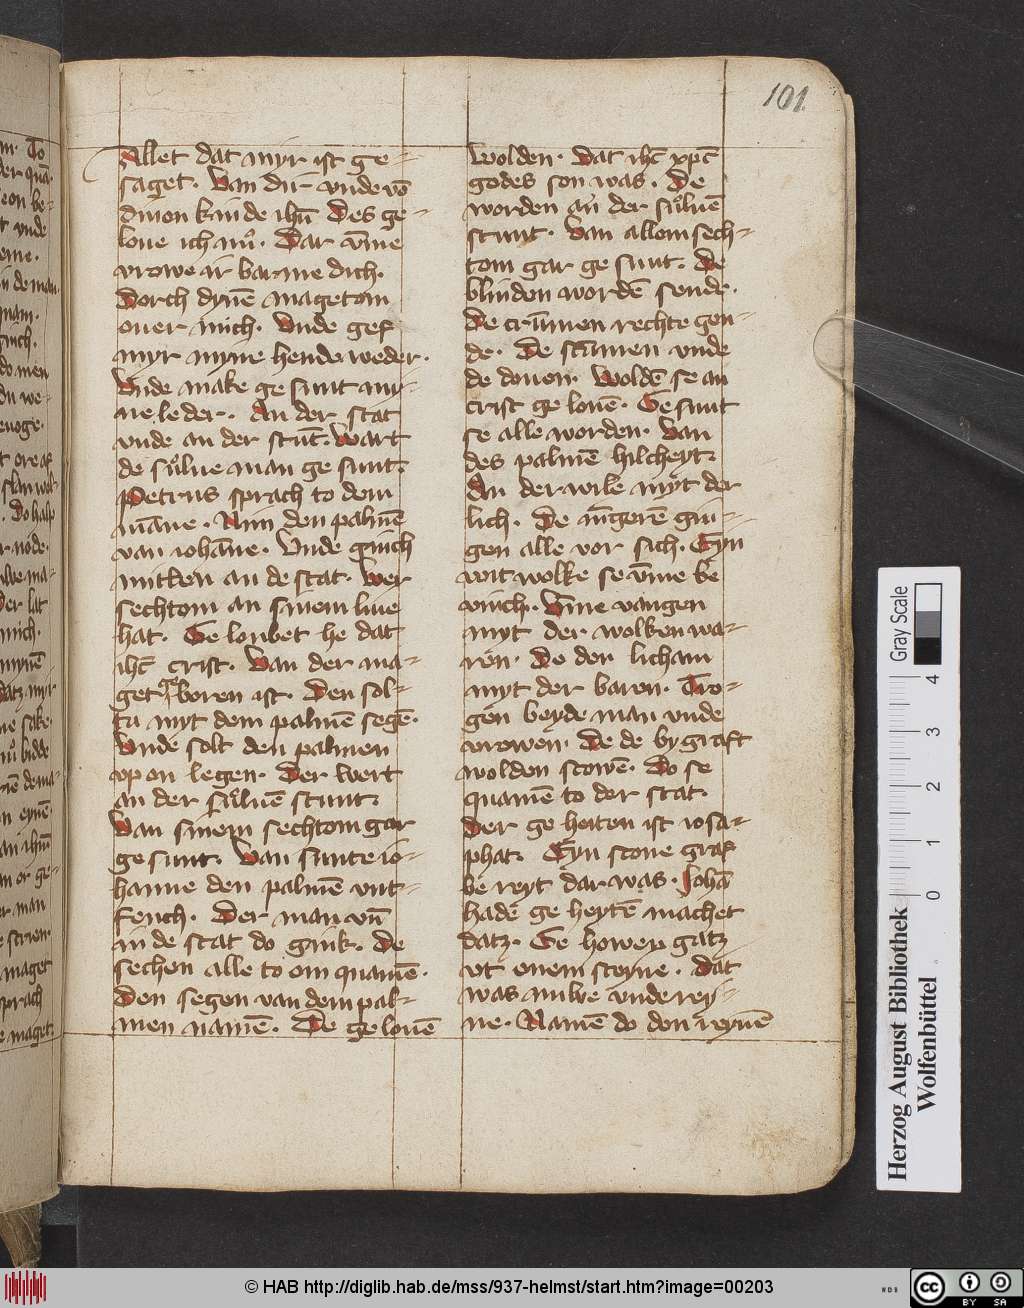 101
Allet dat myr ist ge-
saget. Van dir vnde vō
dinen kinde ihm̄ Des ge-
loue ich nu. Dar v̄me
vrowe ir barme dich.
Dorch dynē magetom
ouer mich. Vnde gef
myr myne hende weder.
Vnde make ge sunt my-
ne leder. An der stat
vnde an der stūt. Wart
de sůlue man ge sunt.
Petrus sprach to dem
māne. Nim den palmē
van iohāne. Vnde ginch
mitten an de stat. Wer
sechtom an sinem liue
hat. Ge loubet he dat
ihc̄ crist. Van der ma-
get ge boren ist. Den sol-
tu myt dem palmē segē.
Vnde solt den palmen
vp on legen. Der wert
an der sůluē stunt.
Van sinem sechtom gar
ge sunt. Van sunte io-
hanne den palmē vnt-
fench. Der man vn̄
in de stat do gink. De
sechen alle to om quamē.
Den segen van dem pal-
men namē. De ge louē
Wolden. Dat ihc̄ xpc̄
godes son was. De
worden an der sůluē
stunt. Van allem sech-
tom gar ge sunt. De
blinden wordē sende.
De crūmen rechte gen-
de. De stūmen vnde
de douen. Woldē se an
crist ge louē. Ge sunt
se alle worden. Van
des palmē hilcheyt.
An der wile myt der
lich. De iūgerē gin-
gen alle vor sich. Eyn
wit wolke se v̄me be
vinch. Vme vangen
myt der wolken wa-
ren. Do den licham
myt der baren. Tro-
gen beyde man vnde
vrowen. De de by graft
wolden scowē. Do se
quamē to der stat.
Der ge heiten ist iosa-
phat. Eyn scone graf
be reyt dar was. Johā
hadē ge heytē machet
datz. Ge howen gatz
vt enem steyne. Dat
was milwe vnde rey-
ne. Namē do den reynē
Herzog August Bibliothek
Wolfenbüttel
Gray Scale
0 1 2 3 4
© HAB http://diglib.hab.de/mss/937-helmst/start.htm?image=00203
WDB
cc
BY SA